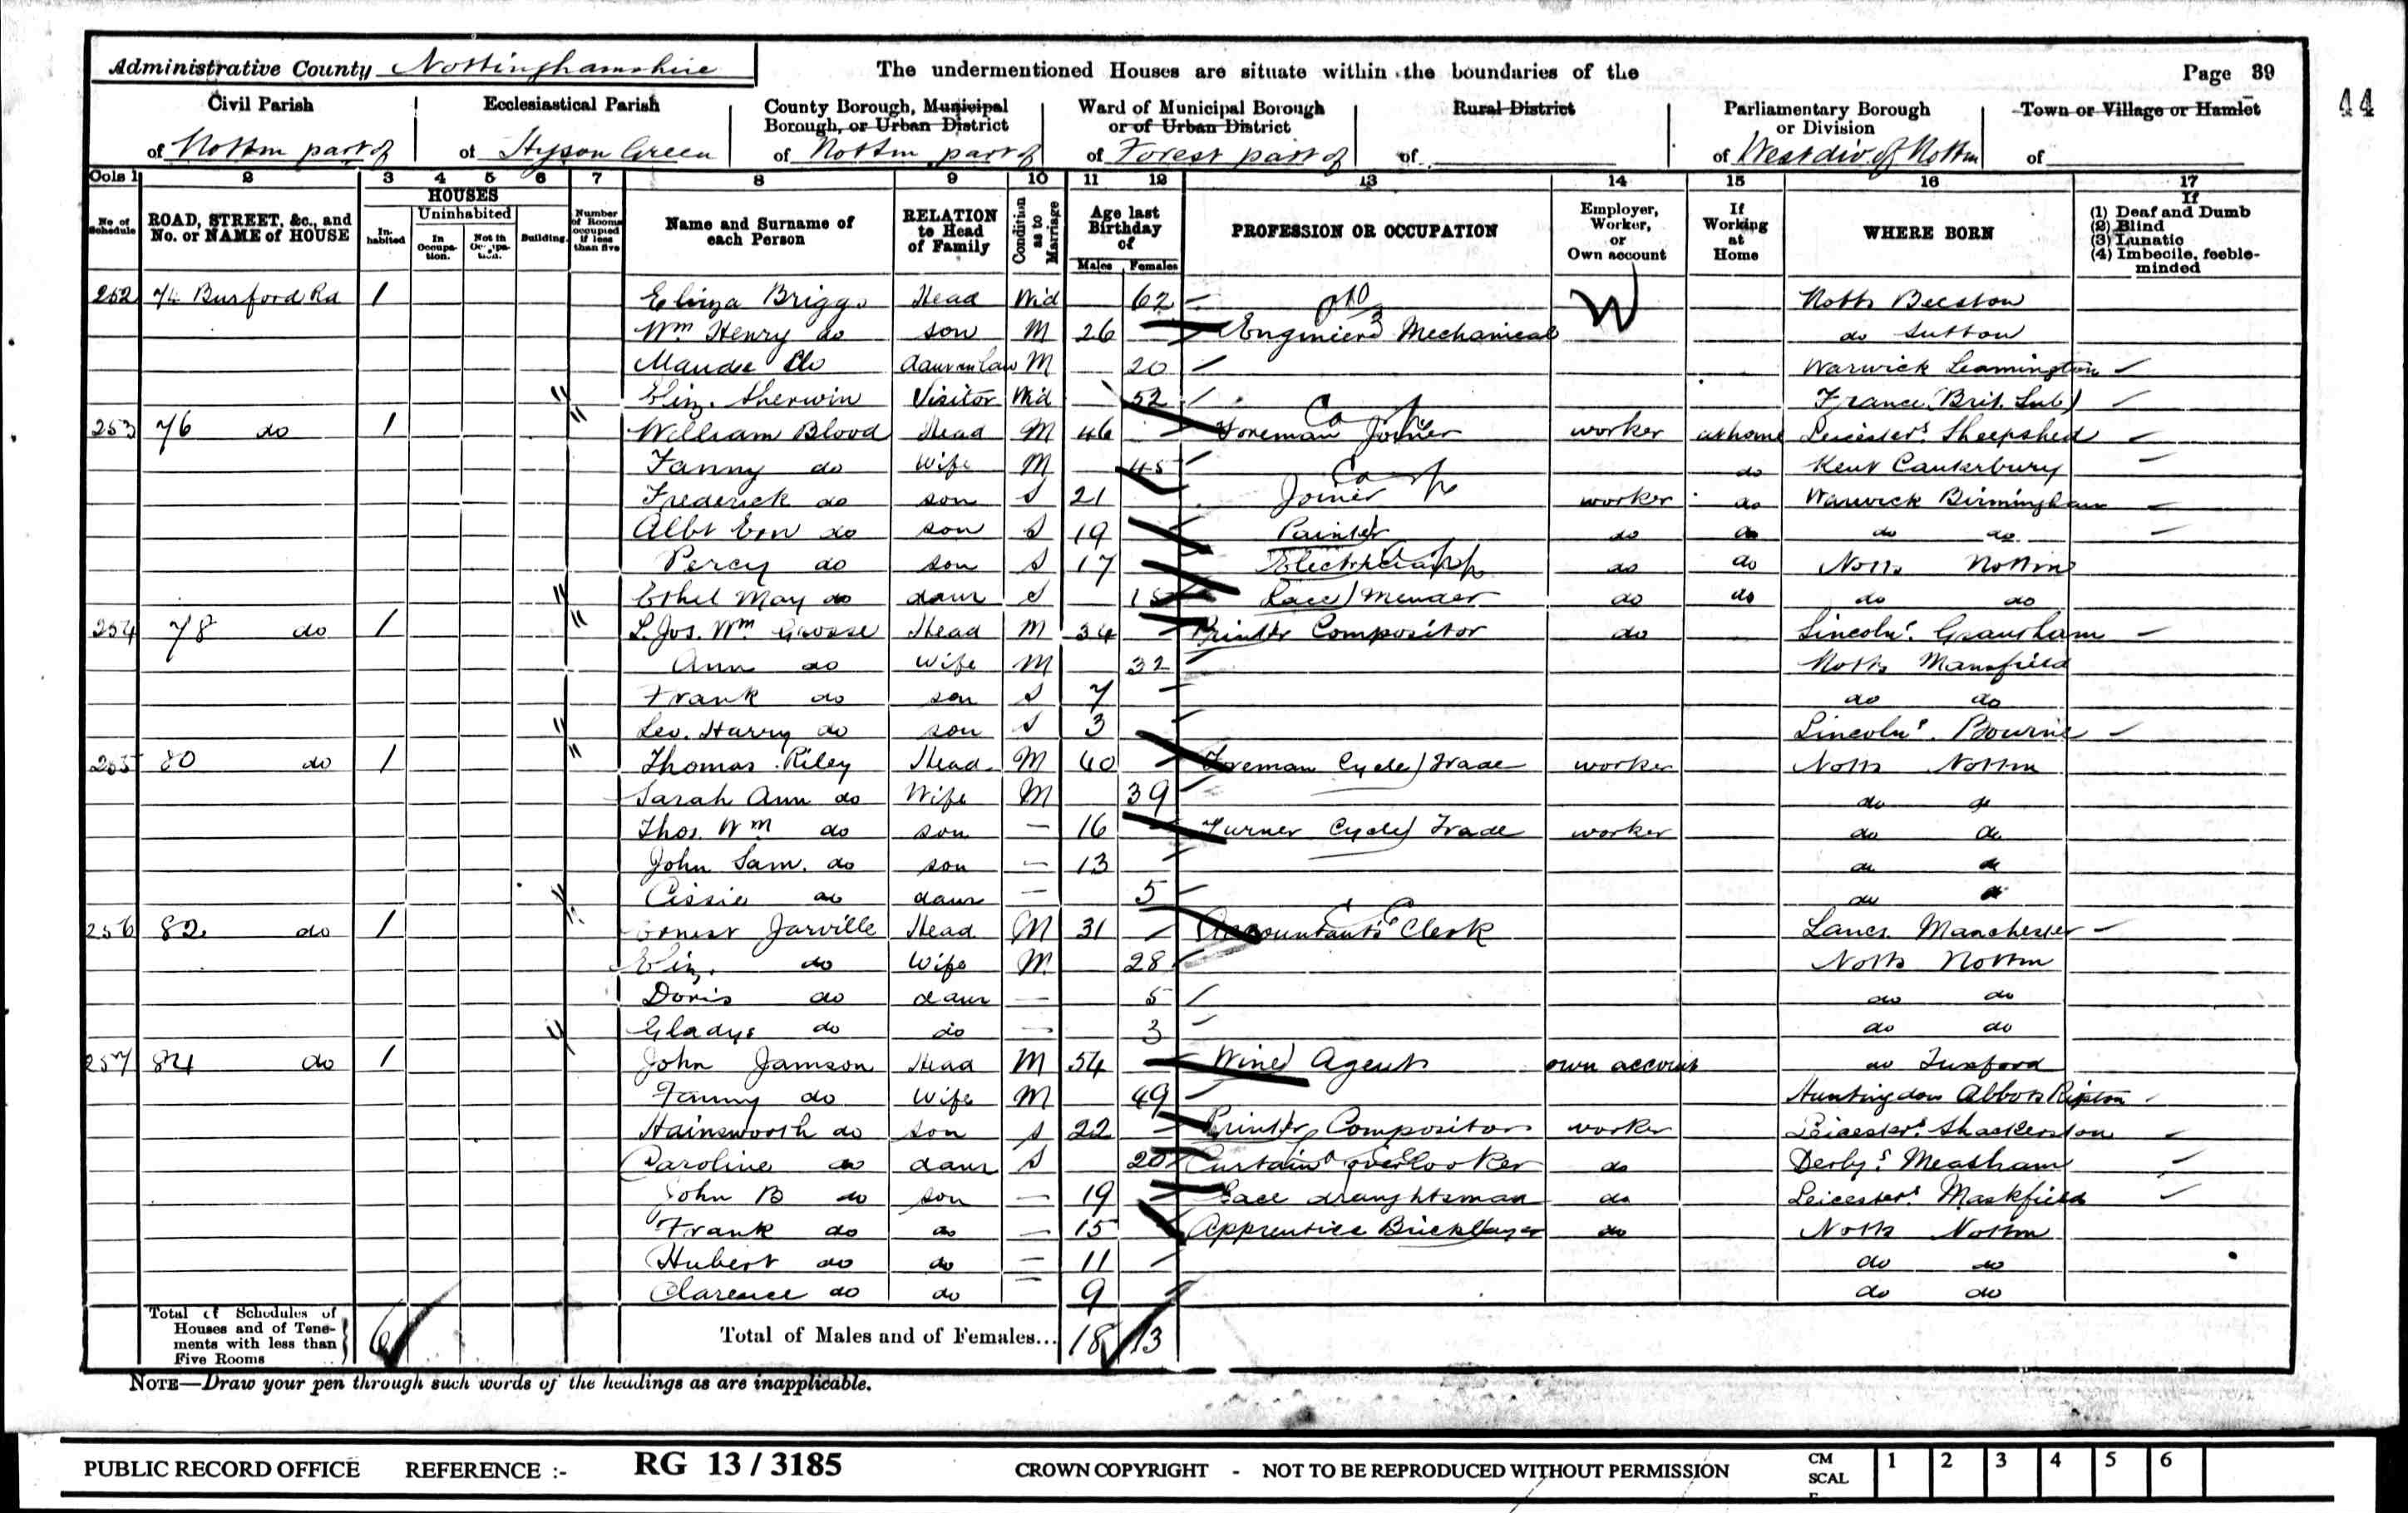 Administrative County Nottinghamshire The undermentioned Houses are situate within the boundaries of the Page 39
44
Civil Parish Ecclesiastical Parish County Borough, Municipal Borough, or Urban District Ward of Municipal Borough or of Urban District Rural District Parliamentary Borough or Division Town or Village or Hamlet
of Nottm part of of Hyson Green of Nottm part of of Forest part of of of West div. of Nottm of
Cols 1 2 3 4 5 6 7 8 9 10 11 12 13 14 15 16 17
No of Schedule ROAD, STREET, &c., and No. or NAME of HOUSE HOUSES In-habited Uninhabited In Occupa-tion. Not in Occupa-tion. Building. Number of Rooms occupied if less than five Name and Surname of each Person RELATION to Head of Family Condition as to Marriage Age last Birthday of Males Females PROFESSION OR OCCUPATION Employer, Worker, or Own account If Working at Home WHERE BORN If (1) Deaf and Dumb (2) Blind (3) Lunatic (4) Imbecile, feeble-minded
252 74 Burford Rd 1 Eliza Briggs Head Wid 62 Notts Beeston
Wm Henry do son M 26 Engineer Mechanical W do Sutton
Maude do daurinlaw M 20 Warwick Leamington
Eliz. Sherwin Visitor Wid 52 France (Brit. Sub)
253 76 do 1 William Blood Head M 46 Foreman Joiner worker at home Leicesters Sheepshed
Fanny do Wife M 45 do Kent Canterbury
Frederick do son S 21 Joiner worker do Warwick Birmingham
Albt Ern do son S 19 Painter do do do do
Percy do son S 17 do do Notts Nottm
Ethel May do daur S 15 Lace Mender do do do do
254 78 do 1 L. Jos. Wm Grosse Head M 34 Printer Compositor do Lincolns. Grantham
Ann do Wife M 32 Notts Mansfield
Frank do son S 7 do do
Leo. Harry do son S 3 Lincolns. Bourne
255 80 do 1 Thomas Riley Head M 40 Foreman Cycle Trade worker Notts Nottm
Sarah Ann do Wife M 39 do do
Thos. Wm do son – 16 Turner Cycle Trade worker do do
John Sam. do son – 13 do do
Cissie do daur – 5 do do
256 82 do 1 Ernest Jarville Head M 31 Accountants Clerk Lancs. Manchester
Eliz. do Wife M 28 Notts Nottm
Doris do daur – 5 do do
Gladys do do – 3 do do
257 84 do 1 John Jamson Head M 54 Wine Agent own account do Tuxford
Fanny do Wife M 49 Huntingdon Abbots Ripton
Hainsworth do son S 22 Printer Compositor worker Leicesters. Shackerston
Caroline do daur S 20 Curtain overlooker do Derbys. Measham
John B do son – 19 Lace draughtsman do Leicesters
Frank do do – 15 Apprentice Bricklayer do Notts Nottm
Hubert do do – 11 do do
Clarence do do 9 do do
Total of Schedules of Houses and of Tene-ments with less than Five Rooms 6 Total of Males and of Females... 18 13
NOTE—Draw your pen through such words of the headings as are inapplicable.
PUBLIC RECORD OFFICE REFERENCE :- RG 13 / 3185 CROWN COPYRIGHT - NOT TO BE REPRODUCED WITHOUT PERMISSION CM SCAL 1 2 3 4 5 6